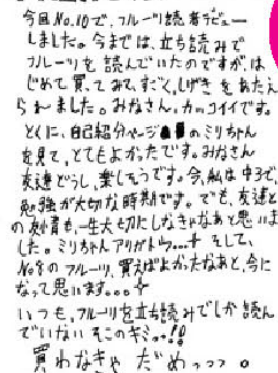 今回No.10で、フルーツ読者デビュー
しました。今までは、立ち読みで
フルーツを読んでいたのですが、は
じめて買ってみて、すごく、しげきをあたえ
られました。みなさん、カッコイイです。
とくに、自己紹介ページ のミリちゃん
を見て、とてもよかったです。みなさん
友達どうし、楽しそうです。今、私は中3で、
勉強が大切な時期です。でも、友達と
の友情も、一生大切にしなきゃなあと思いま
した。ミリちゃんアリガトウ...† そして、
No.8のフルーツ、買えばよかったなあと、今に
なって思います。。。†
いつも、フルーツを立ち読みでしか読ん
でいないそこのキミっ!!
買わなきゃだめっっっ。